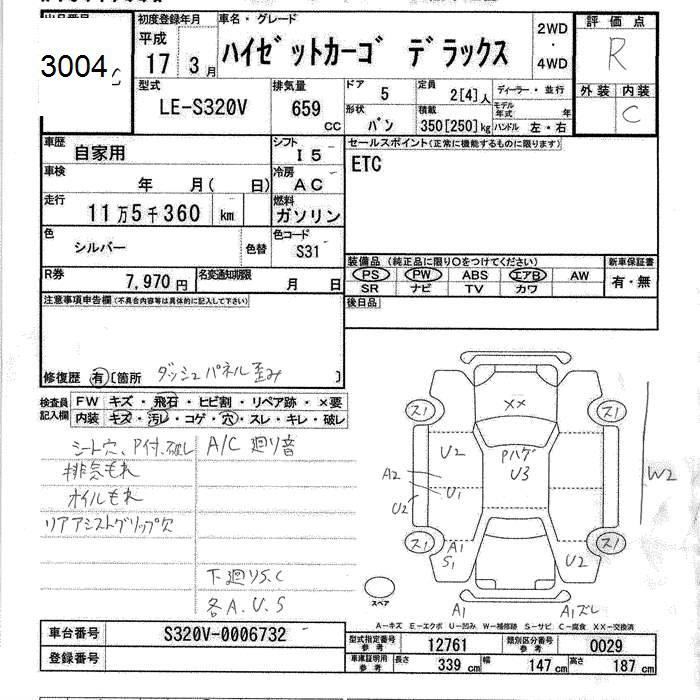 3004
初度登録年月 車名・グレード
平成 17 3月 ハイゼットカーゴ デラックス 2WD・4WD
評価点
R
外装 内装
C
型式 排気量 ドア 5 定員 2[4]人 ディーラー・並行
LE-S320V 659 CC 形状 バン 積載 350[250]kg モデル年式 年 ハンドル 左・右
車歴 自家用 シフト I5
セールスポイント(正常に機能するものに限ります)
ETC
車検 年 月( 日) 冷房 AC
走行 11万5千360 km 燃料 ガソリン
色 シルバー 色替 色コード S31
装備品 (純正品に限り○をつけてください) 新車保証書
PS PW ABS エアB AW 有・無
SR ナビ TV カワ
R券 7,970円 名変通知期限 月 日
後日品
注意事項申告欄(不具合内容等は具体的に記入して下さい)
修復歴 有 [箇所 ダッシュパネル歪み ]
検査員記入欄 FW キズ・飛石・ヒビ割・リペア跡・×要
内装 キズ・汚レ・コゲ・穴・スレ・キレ・破レ
シート穴、P付、破レ A/C 廻り音
排気もれ
オイルもれ
リアアシストグリップ欠
下廻りS.C
各A.U.S
スペア
ス1 ス1
XX
U2 Pハゲ U3
A2 U1 W2
U2
ス1 A1 S1 U2 ス1
A1 A1ズレ
A-キズ E-エクボ U-凹み W-補修跡 S-サビ C-腐食 XX-交換済
車台番号 S320V-0006732
登録番号
型式指定番号 参考 12761 類別区分番号 参考 0029
車庫証明用 参考 長さ 339 cm 幅 147 cm 高さ 187 cm